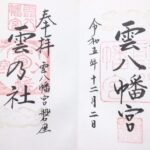 雲八幡宮
令和五年十二月二日
奉拝 雲八幡宮磐座
雲乃社